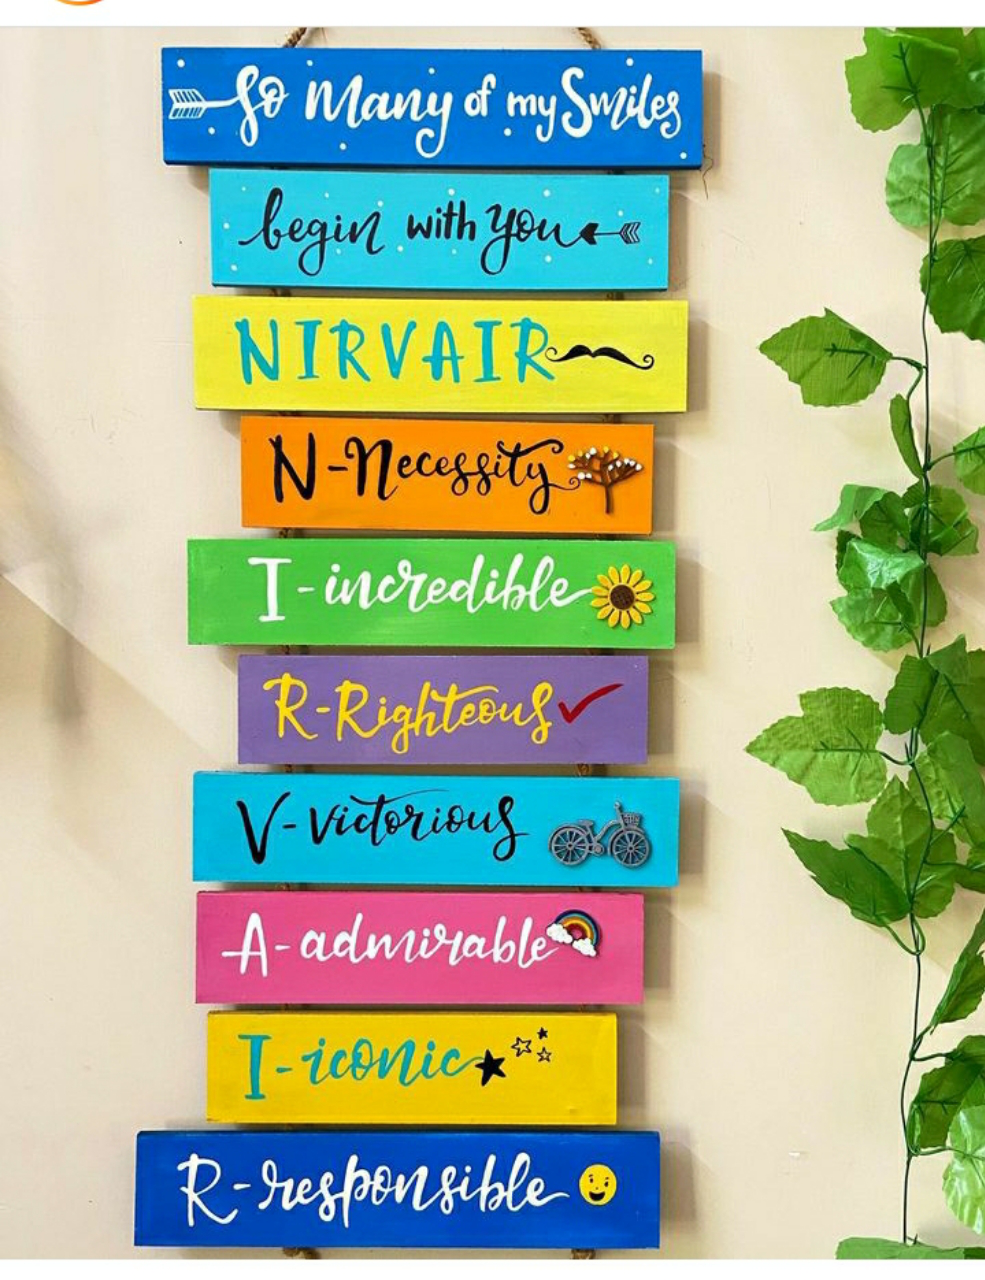 So Many of my Smiles
begin with you
NIRVAIR
N-Necessity
I-incredible
R-Righteous
V-victorious
A-admirable
I-iconic
R-responsible